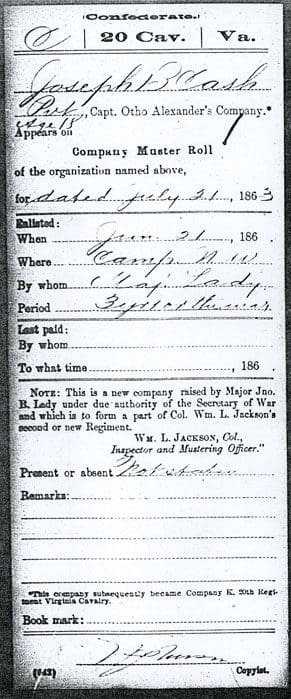 (Confederate.)
C | 20 Cav. | Va.
Joseph B Cash
Pvt, Capt. Otho Alexander's Company.*
Age 18
Appears on
Company Muster Roll
of the organization named above,
for dated July 21, 1863
Enlisted:
When Jun. 21, 186 .
Where Camp N W
By whom Maj Lady
Period 3 yrs or the war
Last paid:
By whom
To what time , 186 .
NOTE: This is a new company raised by Major Jno.
B. Lady under due authority of the Secretary of War
and which is to form a part of Col. Wm. L. Jackson's
second or new Regiment.
WM. L. JACKSON, Col.,
Inspector and Mustering Officer."
Present or absent Not stated
Remarks:
*This company subsequently became Company K, 20th Regi-
ment Virginia Cavalry.
Book mark:
(642) Copyist.